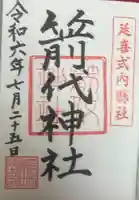 延喜式内
箭代神社
令和六年七月二十五日